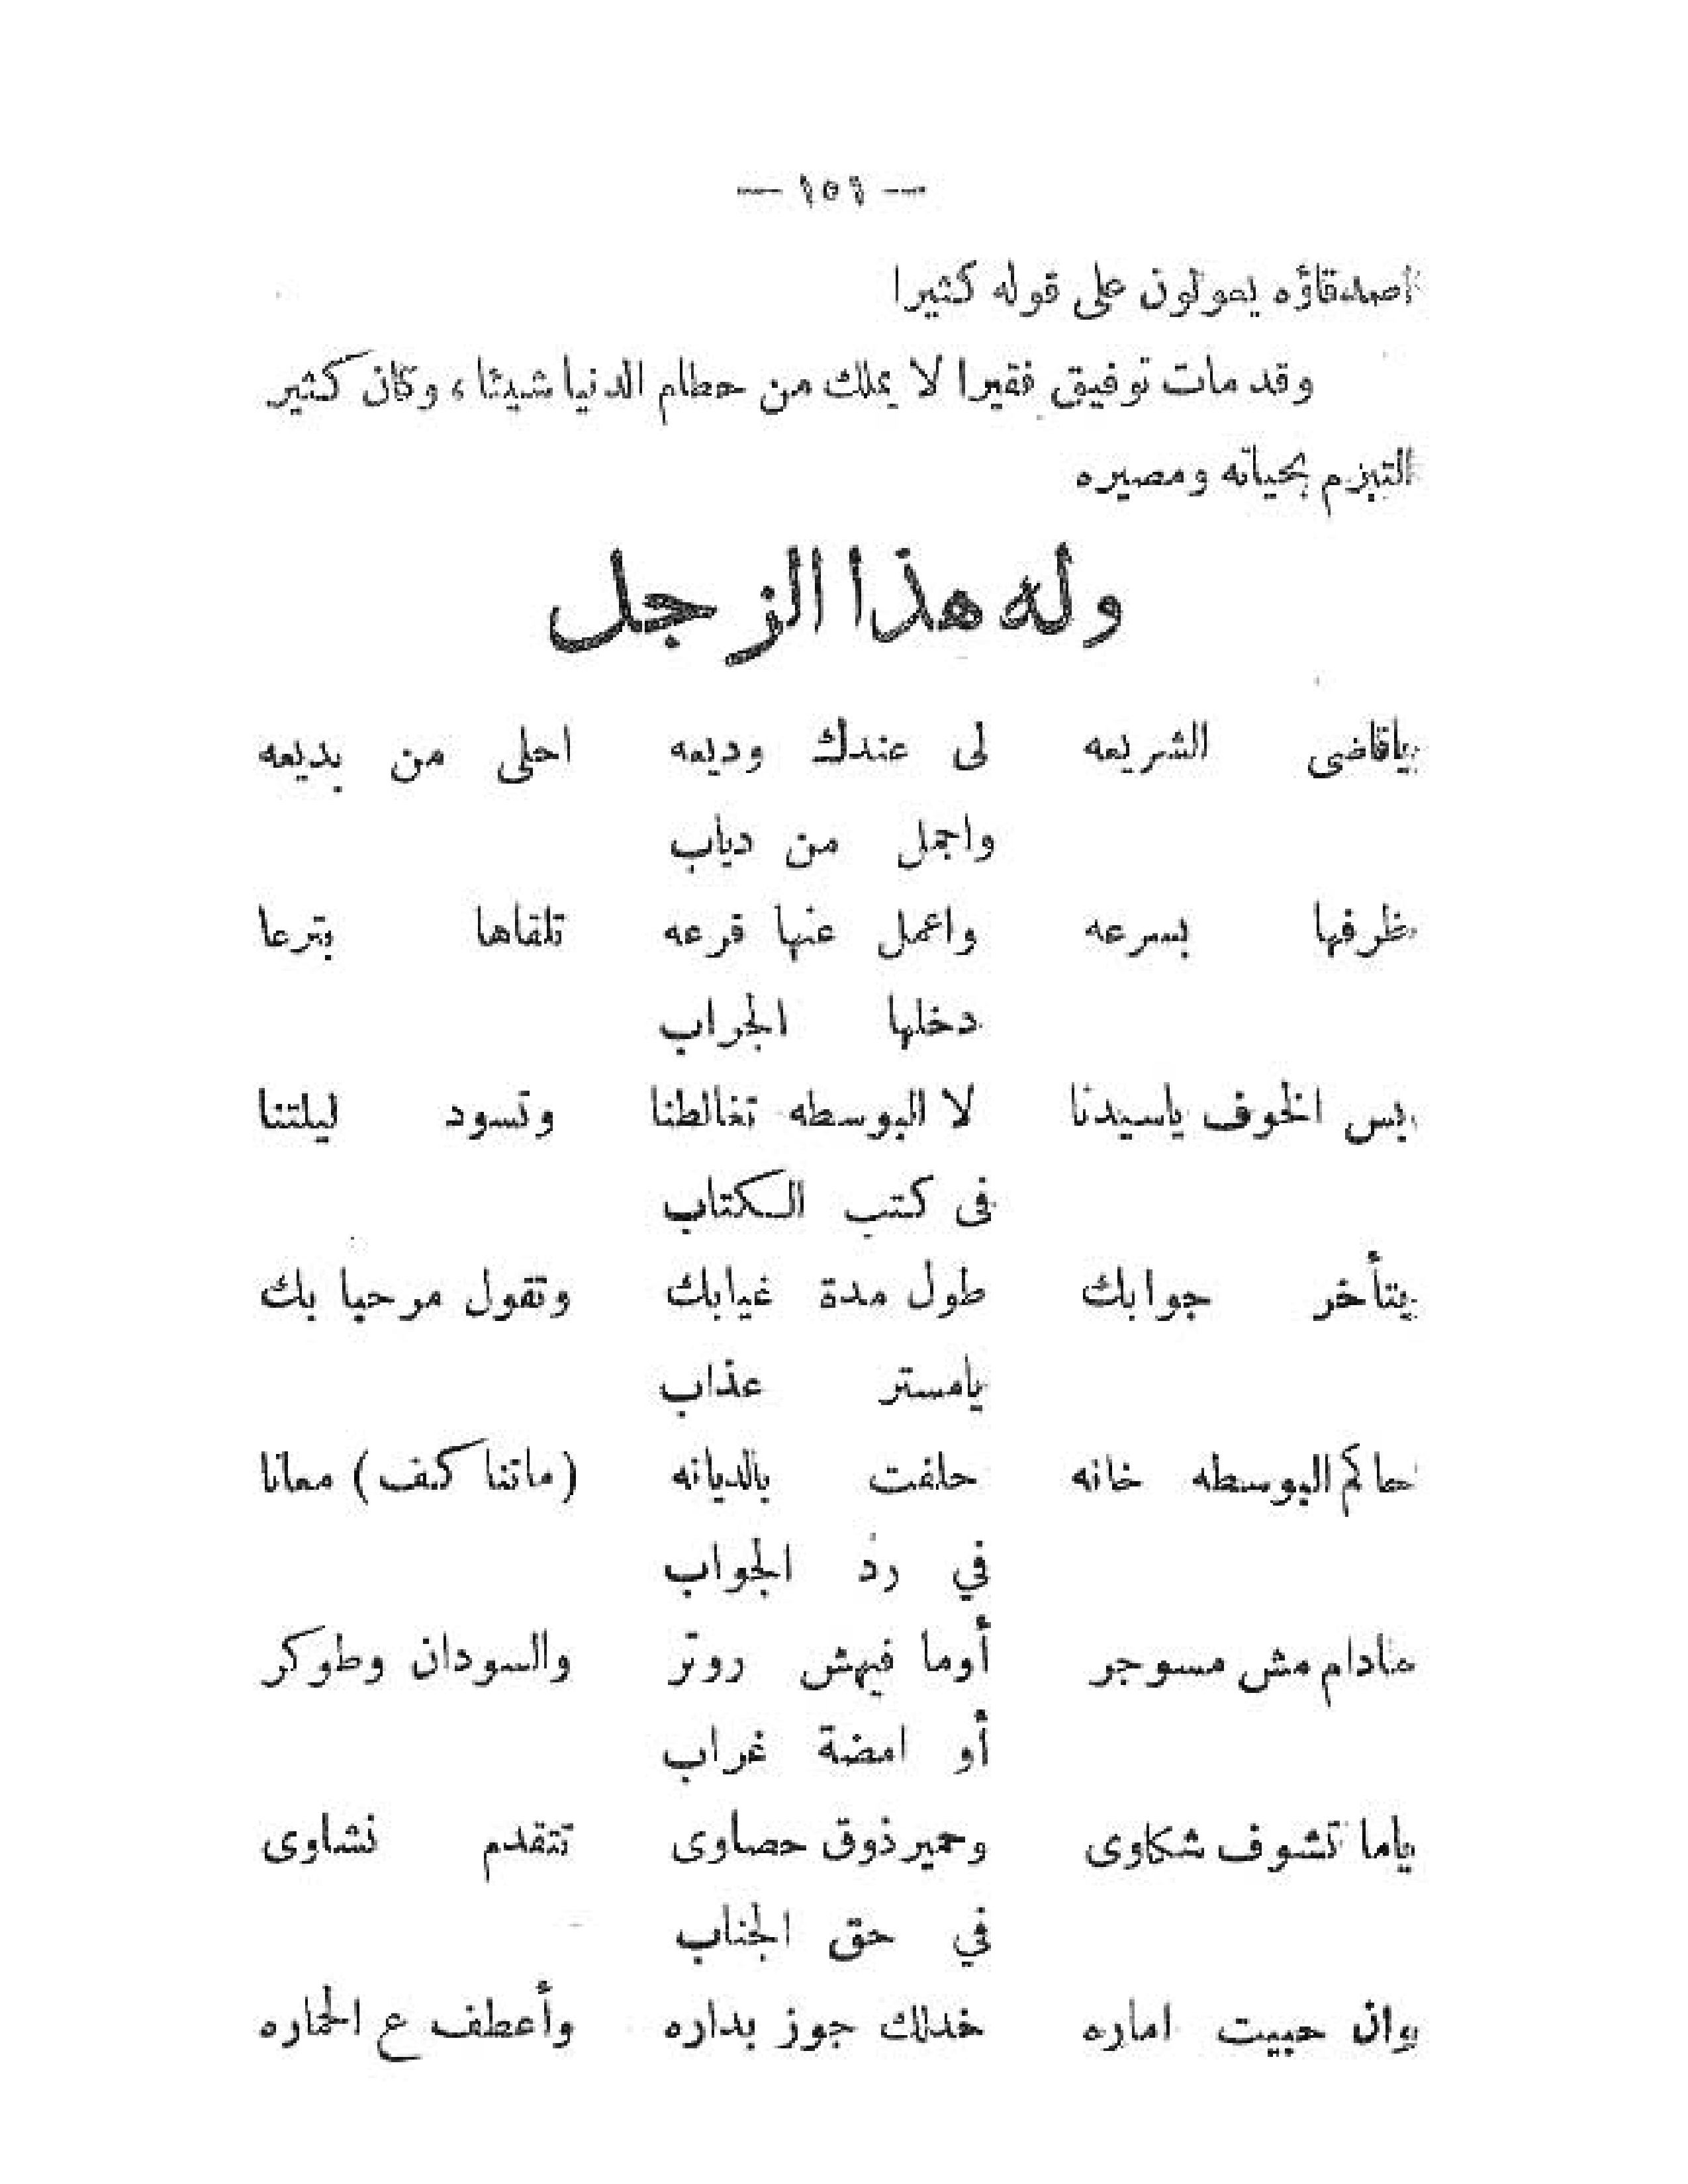 — ١٥٦ —
أصدقاؤه يعولون على قوله كثيرا
وقد مات توفيق فقيرا لا يملك من حطام الدنيا شيئا، وكان كثير
التبزم بحياته ومصيره
وله هذا الزجل
ياقاضى الشريعه لى عندك وديعه احلى من بديعه
واجمل من دياب
ظرفها بسرعه واعمل عنها قرعه تلقاها بترعا
دخلها الجراب
بس الخوف ياسيدنا لا البوسطه تغالطنا وتسود ليلتنا
فى كتب الكتاب
يتأخر جوابك طول مدة غيابك وتقول مرحبا بك
يامستر عذاب
حاكم البوسطه خانه حلفت بالديانه (ماتنا كف) معانا
في رد الجواب
مادام مش مسوجر أوما فيهش روتر والسودان وطوكر
أو امضة غراب
ياما تشوف شكاوى وحمير ذوق حصاوى تتقدم نشاوى
في حق الجناب
وان حبيت اماره خدلك جوز بداره وأعطف ع الخماره